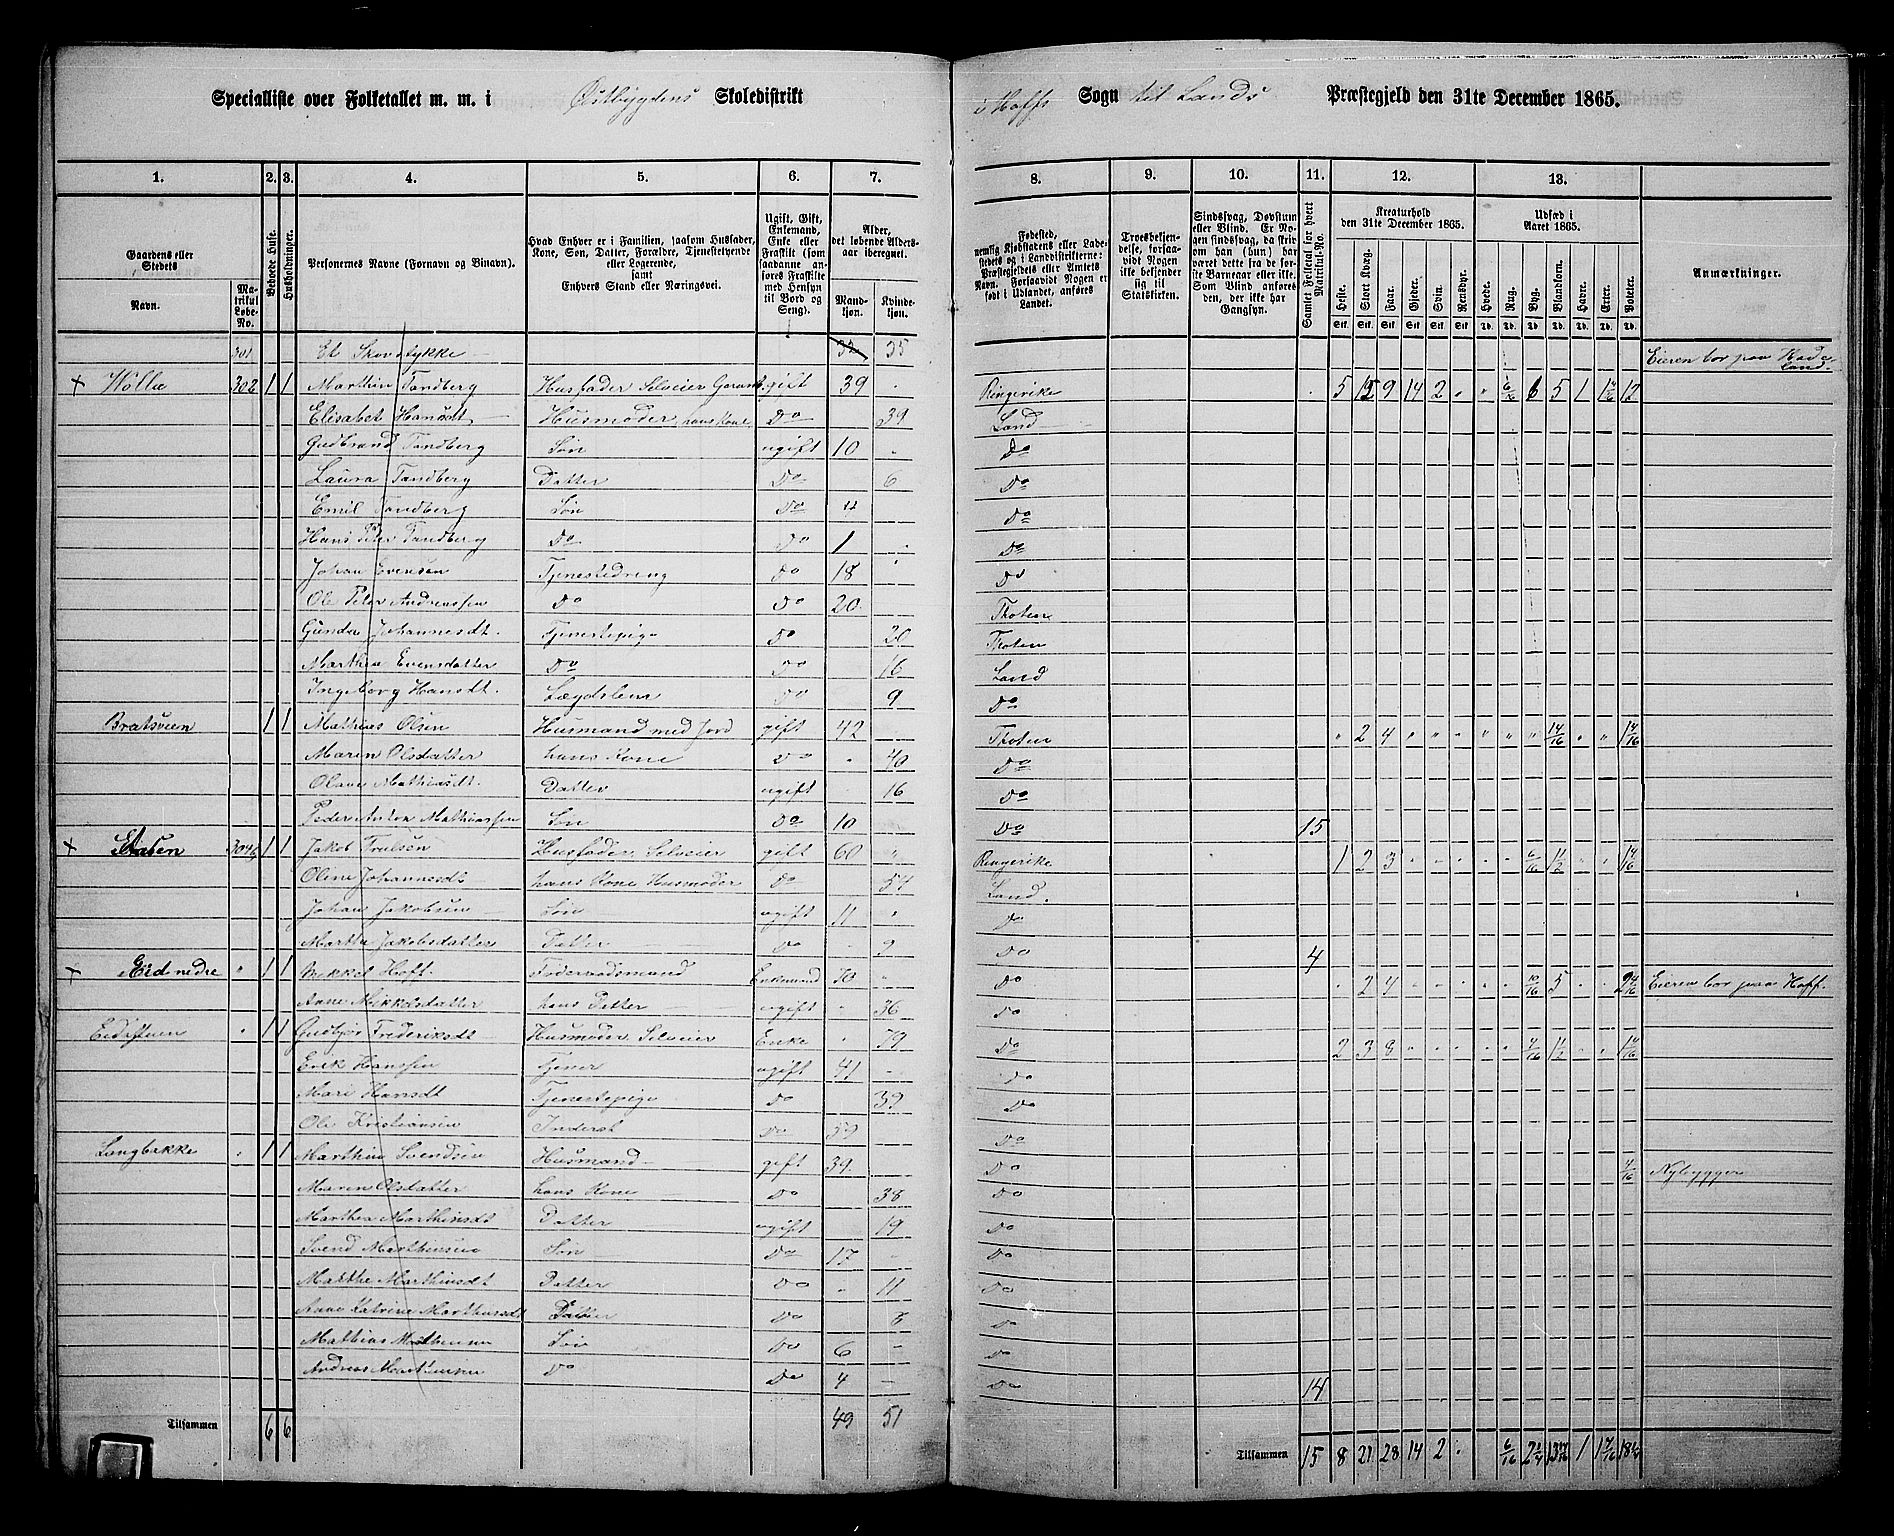 Specialliste over Folketallet m. m. i Østbygdens Skoledistrikt i Hoffs Sogn til Lands Præstegjeld den 31te December 1865.
1. 2. 3. 4. 5. 6. 7. 8. 9. 10. 11. 12. 13.
Gaardens eller Stedets
Navn.
Matrikul Løbe-No.
Beboede Huse.
Husholdninger.
Personernes Navne (Fornavn og Binavn).
Hvad Enhver er i Familien, saasom Husfader, Kone, Søn, Datter, Forældre, Tjenestetyende eller Logerende, samt Enhvers Stand eller Næringsvei.
Ugift, Gift, Enkemand, Enke eller Fraskilt (som saadanne anføres Fraskilte med Hensyn til Bord og Seng).
Alder, det løbende Alders-aar iberegnet.
Mandkjøn. Kvindekjøn.
Fødested, nemlig Kjøbstadens eller Ladestedets og i Landdistrikterne: Præstegjeldets eller Amtets Navn. Forsaavidt Nogen er født i Udlandet, anføres Landet.
Troesbekjendelse, forsaavidt Nogen ikke bekjender sig til Statskirken.
Sindssvag, Døvstum eller Blind. Er Nogen sindssvag, da skriv om han (hun) har været dette fra de første Barneaar eller ikke. Som Blind anføres den, der ikke har Gangsyn.
Samlet Folketal for hvert Matrikul-No.
Kreaturhold den 31te December 1865.
Heste. Stort Kvæg. Faar. Gjeder. Svin. Rensdyr.
Udsæd i Aaret 1865.
Hvede. Rug. Byg. Blandkorn. Havre. Erter. Poteter.
Anmærkninger.
301 Et Skovstykke 32 35 Eieren bor paa Hadeland.
Wølla 302 1 1 Marthin Tandberg Husfader Selveier Gaardb. gift 39 Ringerike 5 15 9 14 2 6/16 6 5 1 1 12
Elisabet Hansdt Husmoder, hans Kone Do 39 Land
Gudbrand Tandberg Søn ugift 10 Do
Laura Tandberg Datter Do 6 Do
Emil Tandberg Søn Do 4 Do
Hans Peter Tandberg Do Do 1 Do
Johan Evensen Tjenestedreng Do 18 Do
Ole Peter Andreassen Do Do 20 Thoten
Gunda Johannesdt. Tjenestepige Do 20 Thoten
Marthea Evensdatter Do Do 16 Land
Ingeborg Hansdt. Lægdslem Do 9 Do
Bratsveen 1 1 Mathias Olsen Husmand med Jord gift 42 Thoten 2 4 14/16 1 4/16
Maren Olsdatter hans Kone Do 40 Do
Olave Mathiasdt. Datter ugift 16 Do
Peder Anton Mathiassen Søn Do 10 Do 15
1 1 Jakob Trulsen Husfader, Selveier gift 60 Ringerike 1 2 3 6/16 1 1/2 1 4/16
Oline Johannesdt hans Kone Husmoder Do 54 Land.
Johan Jakobsen Søn ugift 11 Do
Marthe Jakobsdatter Datter Do 9 Do 4
Eid nedre 1 1 Mikkel Hoff. Foderraadsmand Enkemand 70 Do 2 4 10/16 5 2 4/16 Eieren bor paa Hoff.
Anne Mikkelsdatter hans Datter ugift 36 Do
Eidstuen 1 1 Gudbjør Frederiksdt Husmoder, Selveier Enke 79 Do 2 3 8 4/16 1 1/2 1 4/16
Erik Hanssen Tjener ugift 41 Do
Mari Hansdt Tjenestepige Do 39 Do
Ole Kristiansen Inderst Do 59 Do
Langbakke 1 1 Marthin Svendsen Husmand gift 39. Do 4/16 Nybygger
Maren Olsdatter hans Kone Do 38 Do
Marthea Marthinsdt Datter ugift 19 Do
Svend Marthinsen Søn Do 17 Do
Marthe Marthinsdt Datter Do 11 Do
Anne Katrine Marthinsdt Datter Do 8 Do
Mathias Marthinsen Søn Do 6 Do
Andreas Marthinsen Do Do 4 Do 14
Tilsammen 6 6 49 51 Tilsammen 15 8 21 28 14 2 6/16 1 1 7/16